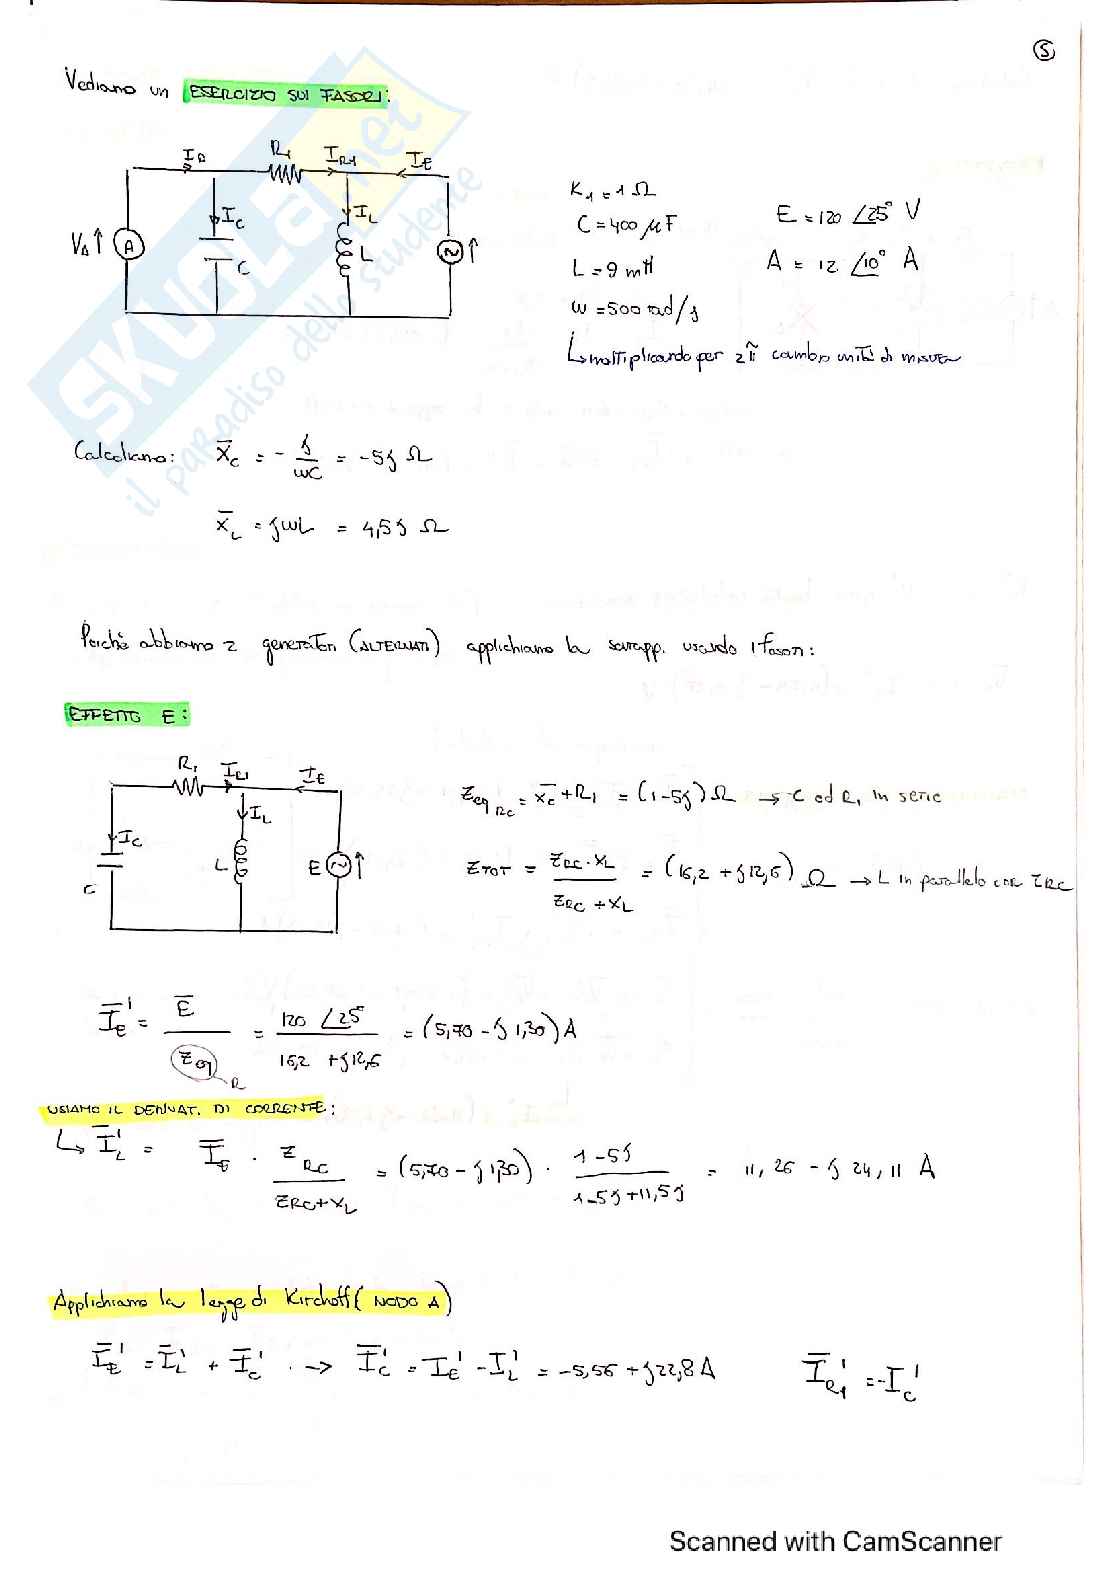 5
Vediamo un ESERCIZIO SUI FASORI:
I_A R_1 I_R1 I_E
I_C I_L
V_A ↑ A C L ~ ↑
R_1 = 1 Ω
C = 400 μF
L = 9 mH
ω = 500 rad/s
↳ moltiplicando per 2π cambio unità di misura
E = 120 ∠25° V
A = 12 ∠10° A
SKUOLA.net
il paradiso dello studente
Calcoliamo: X̄_C = - j/ωC = -5j Ω
X̄_L = jωL = 4,5j Ω
Poiché abbiamo 2 generatori (ALTERNATI) applichiamo la sovrapp. usando i fasori:
EFFETTO E:
R_1 I_R1 I_E
I_C I_L
C L E ~ ↑
Z_eq RC = X̄_C + R_1 = (1-5j) Ω → C ed R_1 in serie
Z_TOT = Z_RC · X_L / Z_RC + X_L = (16,2 + j12,6) Ω → L in parallelo con Z_RC
Ī'_E = Ē / Z_eq = 120 ∠25° / 16,2 + j12,6 = (5,70 - j1,30) A
USIAMO IL DERIVAT. DI CORRENTE:
↳ Ī'_L = Ī_E · Z_RC / Z_RC + X_L = (5,70 - j1,30) · 1-5j / 1-5j+11,5j = 11,26 - j24,11 A
Applichiamo la legge di Kirchoff (NODO A)
Ī'_E = Ī'_L + Ī'_C · → Ī'_C = I'_E - I'_L = -5,56 + j22,8 A Ī'_R1 = -I'_C
Scanned with CamScanner